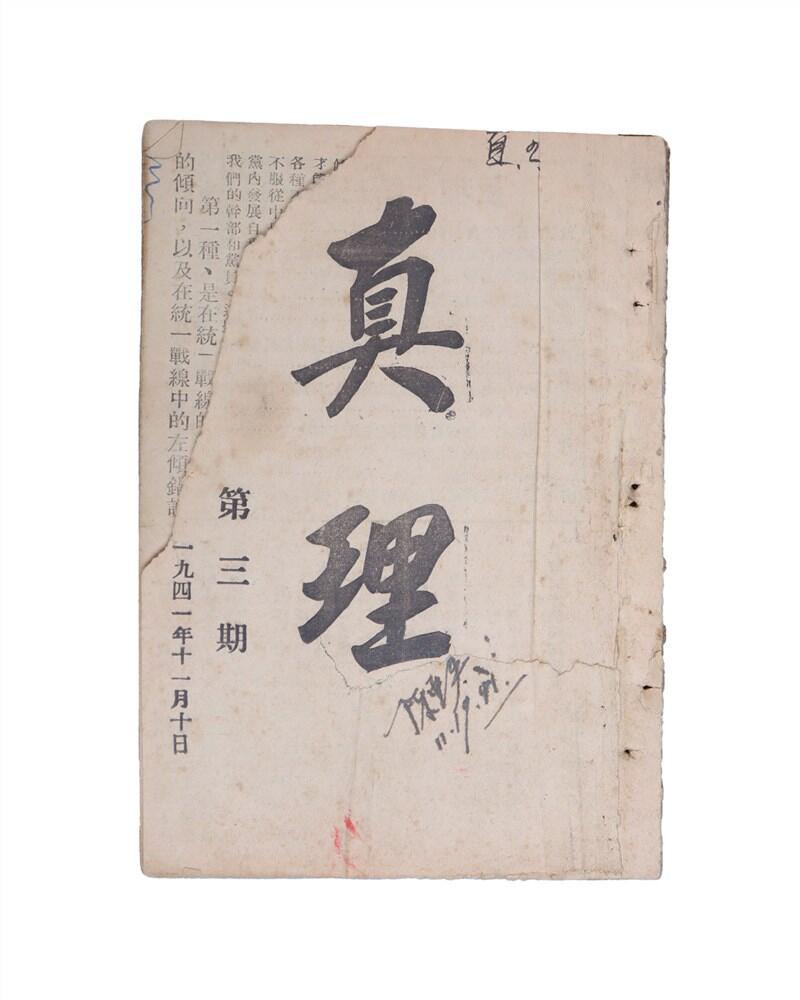 真理
第三期
一九四一年十一月十日
才
各種
不服從中
黨內發展自
我們的幹部和黨員、
第一種、是在統一戰線的
的傾向，以及在統一戰線中的左傾錯誤